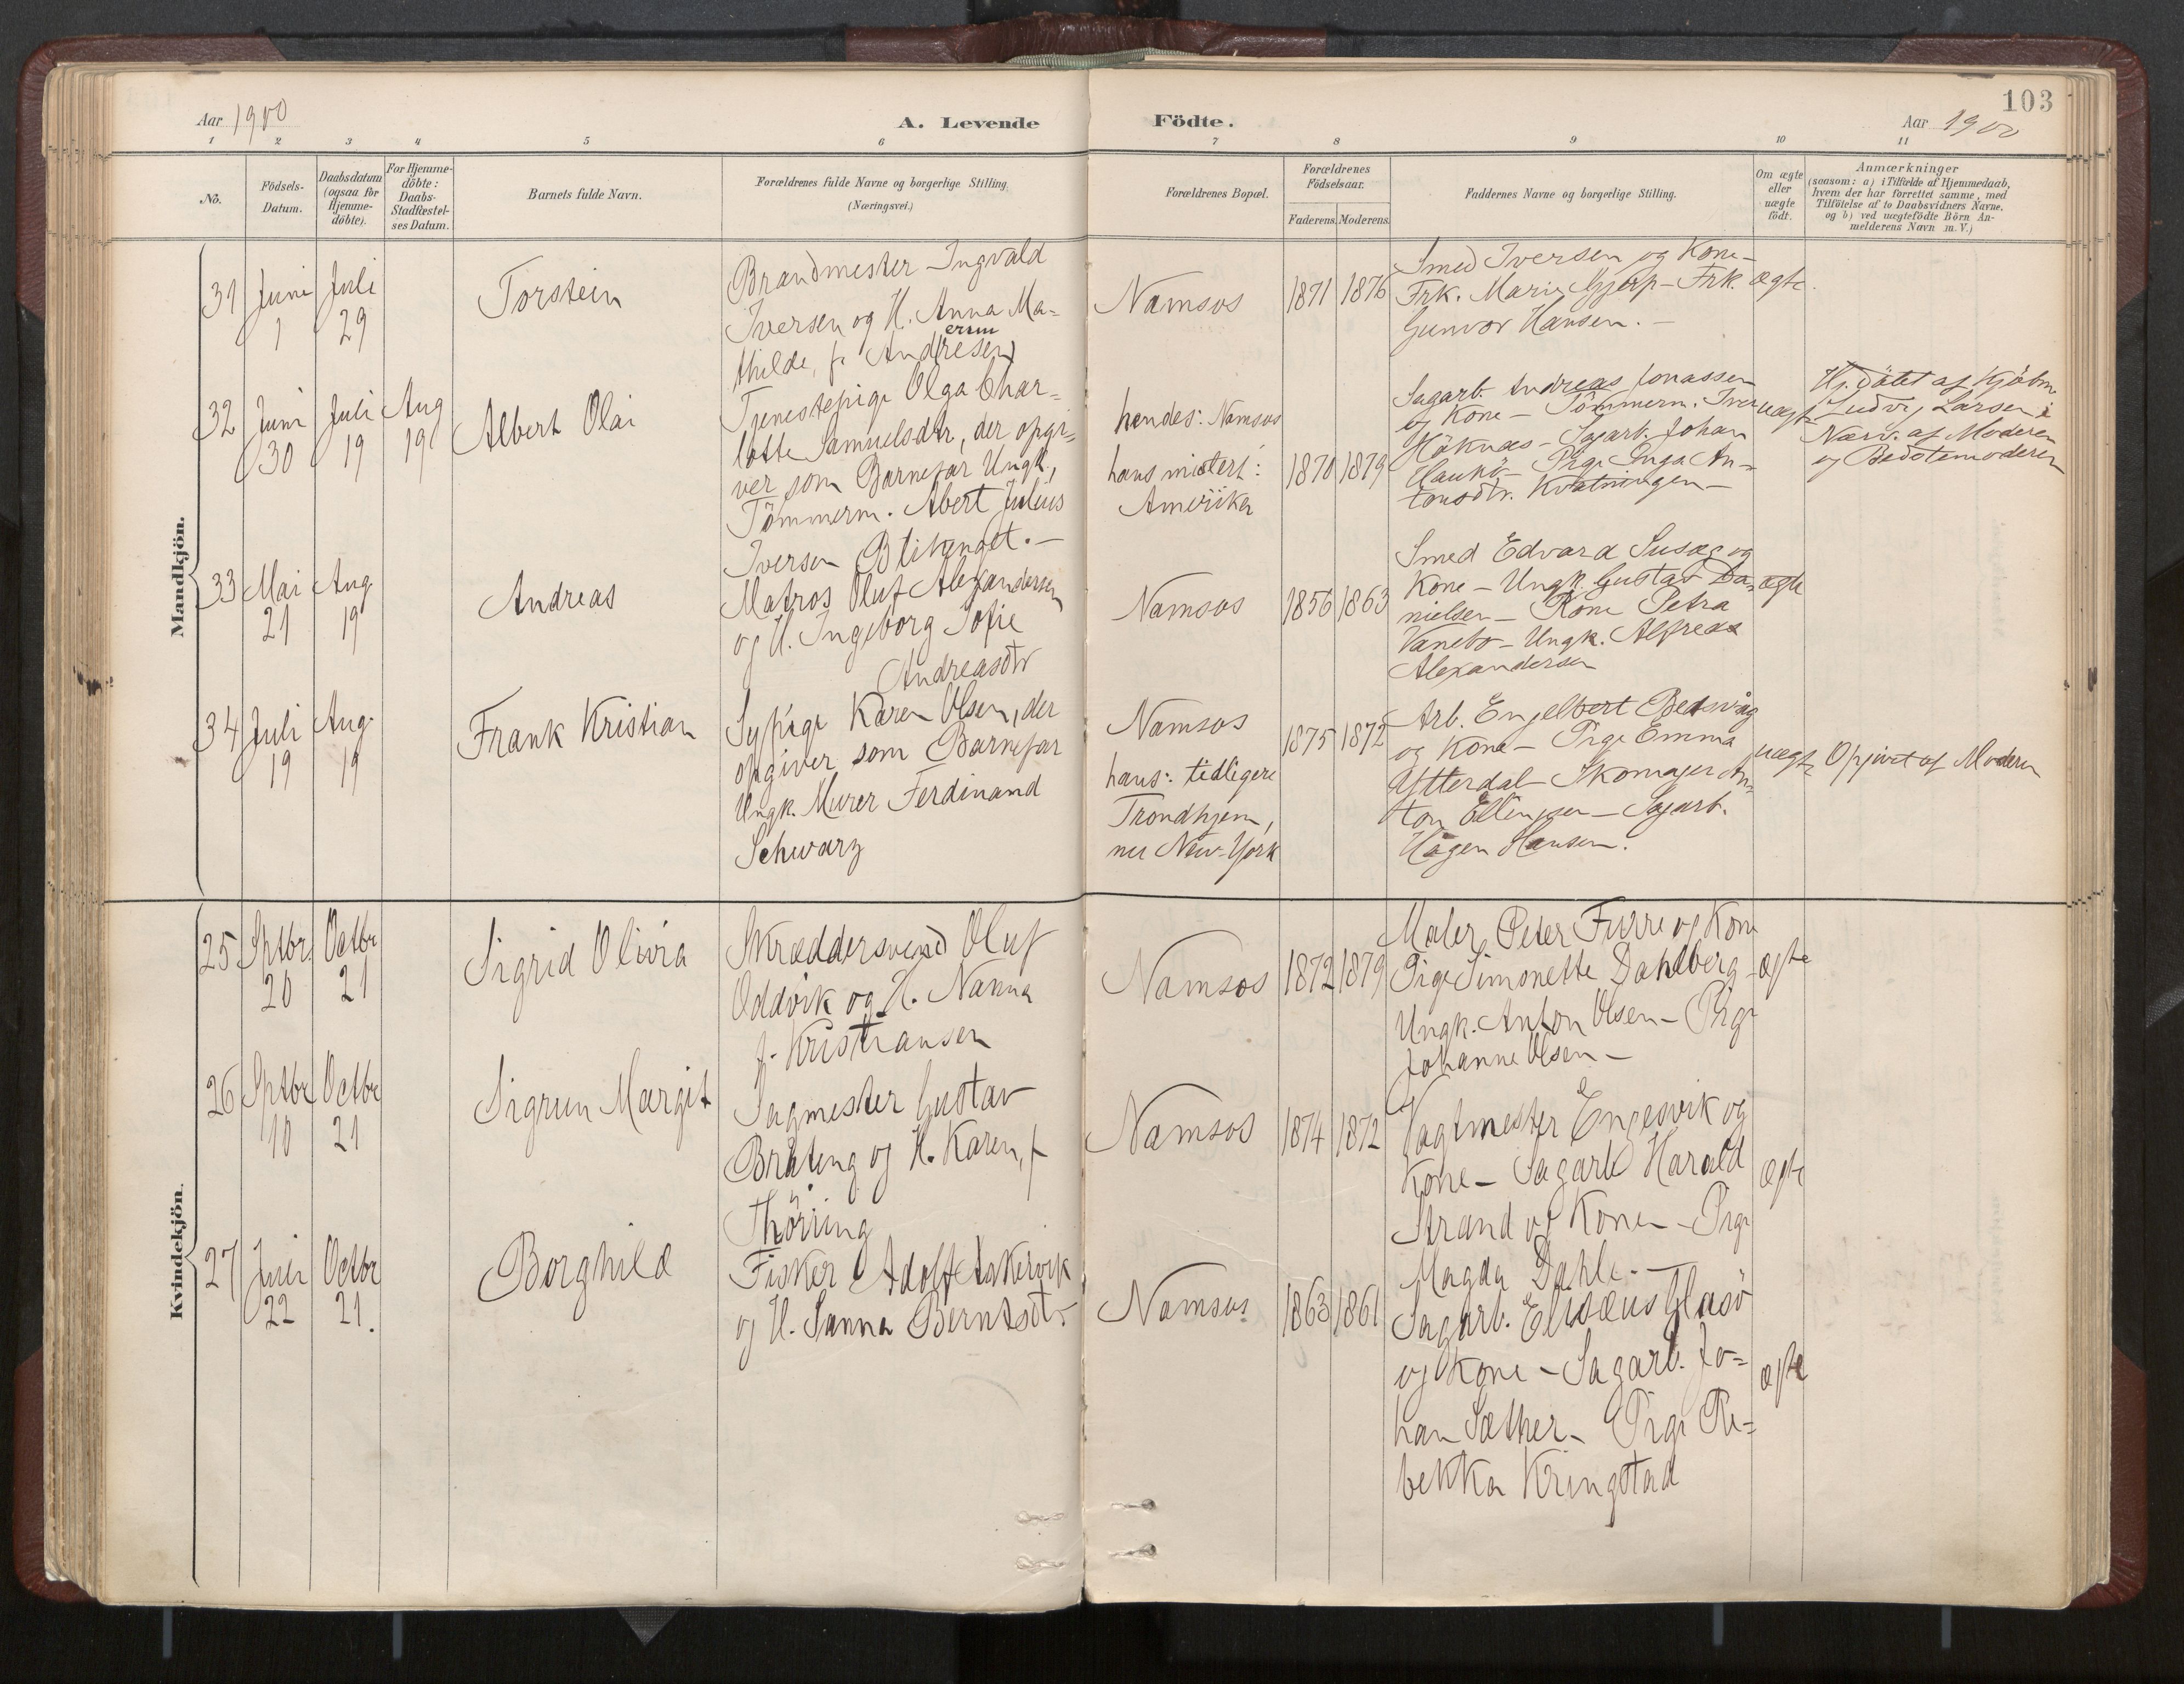 103
Aar 1900
A. Levende
Födte.
Aar 1900
1 2 3 4 5 6 7 8 9 10 11
No.
Födsels-
Datum.
Daabsdatum
(ogsaa for
Hjemme-
döbte).
For Hjemme-
döbte:
Daabs-
Stadfæstel-
ses Datum.
Barnets fulde Navn.
Forældrenes fulde Navne og borgerlige Stilling.
(Næringsvei.)
Forældrenes Bopæl.
Forældrenes
Födselsaar.
Faderens. Moderens.
Faddernes Navne og borgerlige Stilling.
Om ægte
eller
uægte
födt.
Anmærkninger
(saasom: a) i Tilfælde af Hjemmedaab,
hvem der har forrettet samme, med
Tilföielse af to Daabsvidners Navne,
og b) ved uægtefödte Börn An-
melderens Navn m. V.)
Mandkjön.
31
Juni
1
Juli
29
Torstein
Brandmester Ingvald
Iversen og H. Anna Ma=
thilde, f. Andresen
ersen
Namsos
1871 1876
Smed Iversen og Kone-
Frk. Marie Gjerp- Frk.
Gunvor Hansen. -
ægte.
32
Juni
30
Juli
19
Aug
19
Albert Olai
Tjenestepige Olga Char=
lotte Samuelsdtr, der opgi=
ver som Barnefar Ungk.,
Tömmerm. Abert Julius
Iversen Blikenget. -
hendes: Namsos
hans mistert:
Amerika
1870 1879
Sagarb. Andreas Jonassen
og Kone - Tömmerm. Iver
Höknæs - Sagarb. Johan
Haukö - Pige Inga An-
tonsdtr. Kvatningen -
uægte
Hj. döbt af Kjöbm.
Ludvig Larsen i
Nærv. af Moderen
og Bedstemoderen
33
Mai
21
Aug
19
Andreas
Matros Oluf Alexandersen
og H. Ingeborg Sofie
Andreasdtr
Namsos
1856 1863
Smed Edvard Susæg og
Kone - Ungk. Gustav Da=
nielsen - Kone Petra
Vanebo - Ungk. Alfred
Alexandersen
ægte
34
Juli
19
Aug.
19
Frank Kristian
Sypige Karen Olsen, der
opgiver som Barnefar
Ungk. Murer Ferdinand
Schwarz
Namsos
hans: tidligere
Trondhjem,
nu New-York
1875 1872
Arb. Engelbert Bedsvåg
og Kone - Pige Emma
Ytterdal - Skomager An-
ton Ellingsen - Sagarb.
Hågen Hansen.
uægte
Opgivet af Moderen
Kvindekjön.
25
Sptbr.
20
Octbr
21
Sigrid Olivia
Skræddersvend Oluf
Oddvik og H. Nanna
f. Kristiansen
Namsos
1872 1879
Maler Peter Furre og Kone
Pige Simonette Dahlberg -
Ungk. Anton Olsen - Pige
Johanne Olsen -
ægte
26
Sptbr
10
Octbr
21
Sigrun Margit
Sagmester Gustav
Bråteng og H. Karen, f
Thörring
Namsos
1874 1872
Vagtmester Engesvik og
Kone - Sagarb Harald
Strand og Kone - Pige
Magda Dahle. -
ægte
27
Juli
22
Octbr
21.
Borghild
Fisker Adolf Askervik
og H. Sanna Berntsdtr.
Namsos
1863 1861
Sagarb. Elisæus Glasö
og Kone - Sagarb. Jo=
han Sæther - Pige Re=
bekka Kringstad
ægte